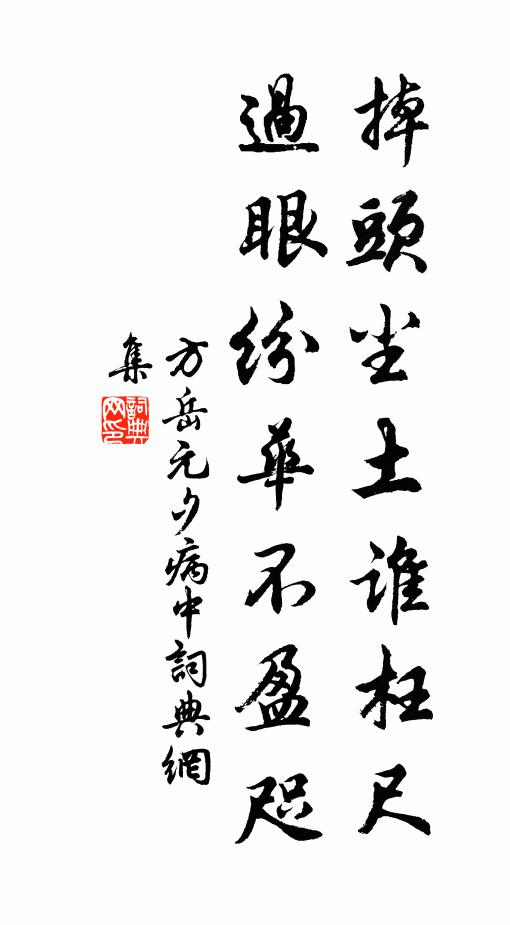 掉頭尘土谁枉尺
過眼纷華不盈咫
方岳元夕病中詞典網
集
詞典網印